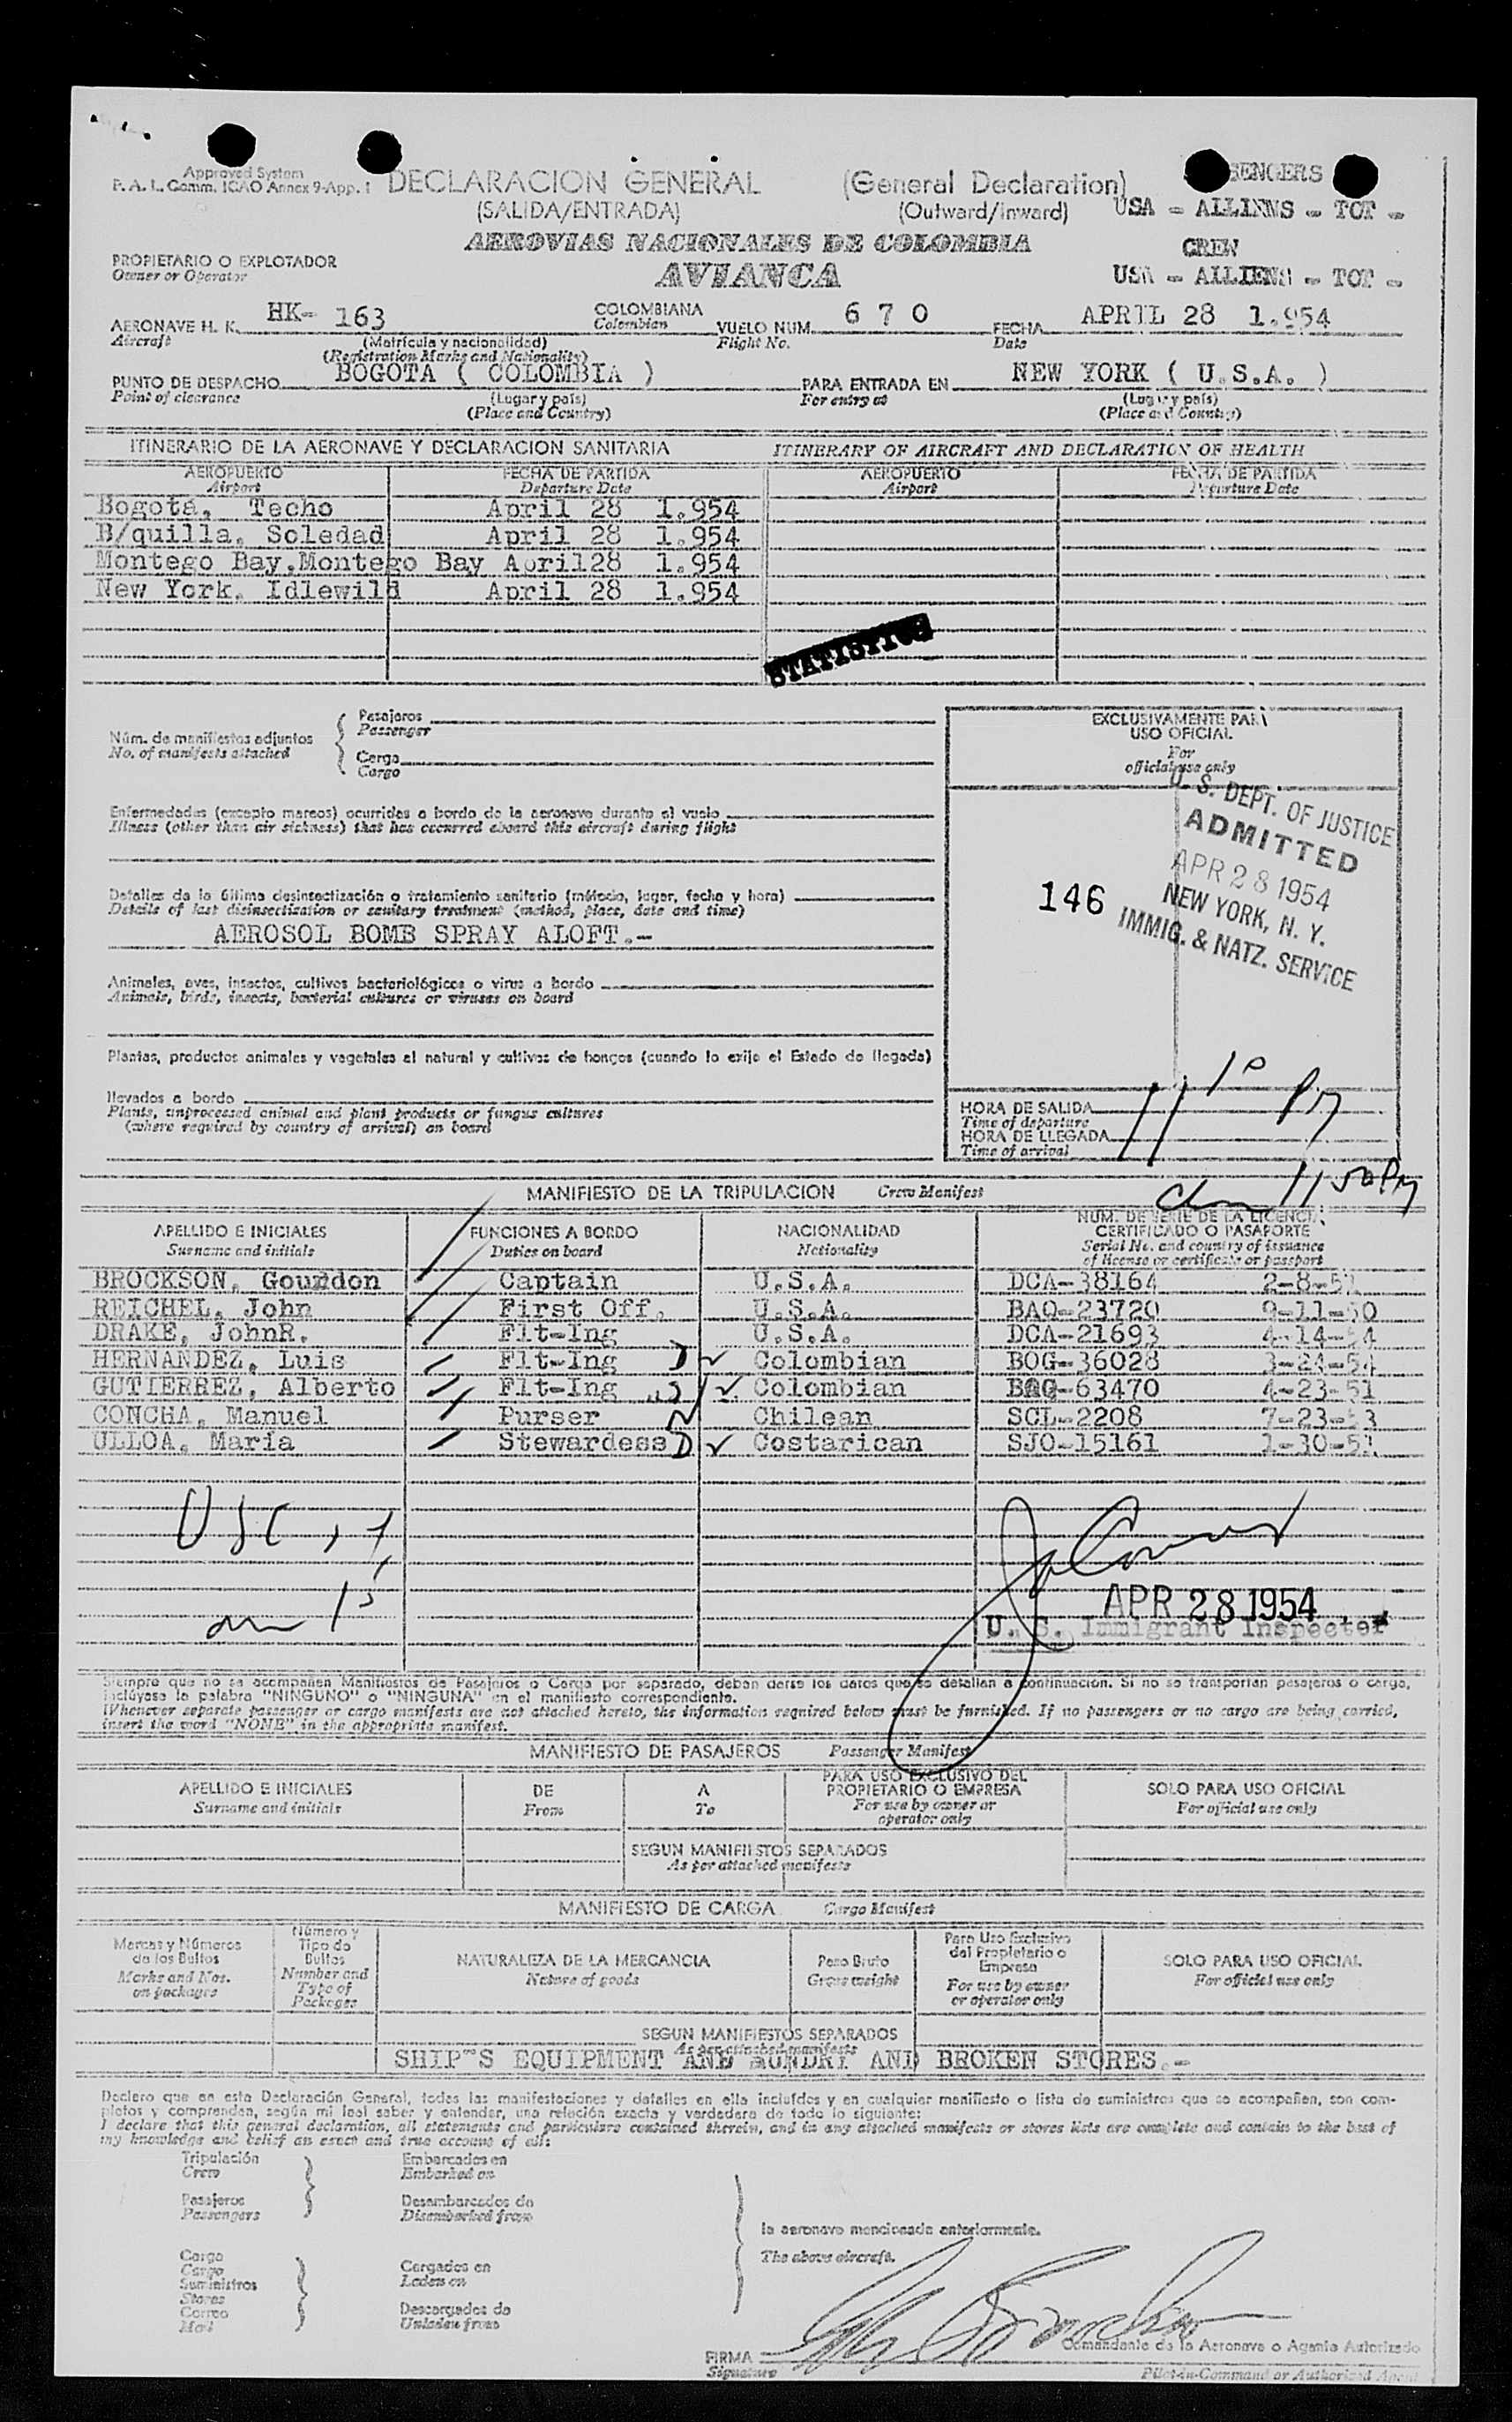 Approved System
P. A. L. Comm. ICAO Annex 9-App. 1
DECLARACION GENERAL (General Declaration)
(SALIDA/ENTRADA) (Outward/inward)
SENGERS
USA - ALLIENS - TOT -
AEROVIAS NACIONALES DE COLOMBIA
AVIANCA
CREW
USA - ALLIENS - TOT -
PROPIETARIO O EXPLOTADOR
Owner or Operator
AERONAVE H. K. HK- 163 COLOMBIANA VUELO NUM. 6 7 0 FECHA APRIL 28 1.954
Aircraft (Matrícula y nacionalidad) Colombian Flight No. Date
(Registration Marks and Nationality)
PUNTO DE DESPACHO BOGOTA ( COLOMBIA ) PARA ENTRADA EN NEW YORK ( U.S.A. )
Point of clearance (Lugar y país) For entry at (Lugar y país)
(Place and Country) (Place and Country)
ITINERARIO DE LA AERONAVE Y DECLARACION SANITARIA ITINERARY OF AIRCRAFT AND DECLARATION OF HEALTH
AEROPUERTO FECHA DE PARTIDA AEROPUERTO FECHA DE PARTIDA
Airport Departure Date Airport Departure Date
Bogotá, Techo April 28 1.954
B/quilla, Soledad April 28 1.954
Montego Bay,Montego Bay April28 1.954
New York, Idlewild April 28 1.954
STATISTICS
Núm. de manifiestos adjuntos
No. of manifests attached
Pasajeros
Passenger
Carga
Cargo
EXCLUSIVAMENTE PARA
USO OFICIAL
For
official use only
Enfermedades (excepto mareos) ocurridas a bordo de la aeronave durante el vuelo
Illness (other than air sickness) that has occurred aboard this aircraft during flight
Detalles de la última desinsectización o tratamiento sanitario (método, lugar, fecha y hora)
Details of last disinsectization or sanitary treatment (method, place, date and time)
AEROSOL BOMB SPRAY ALOFT.-
U. S. DEPT. OF JUSTICE
ADMITTED
APR 28 1954
146
NEW YORK, N. Y.
IMMIG. & NATZ. SERVICE
Animales, aves, insectos, cultivos bacteriológicos o virus a bordo
Animals, birds, insects, bacterial cultures or viruses on board
Plantas, productos animales y vegetales al natural y cultivos de hongos (cuando lo exije el Estado de llegada)
llevados a bordo
Plants, unprocessed animal and plant products or fungus cultures
(where required by country of arrival) on board
HORA DE SALIDA
Time of departure
HORA DE LLEGADA
Time of arrival
11 10 PM
11 50 PM
MANIFIESTO DE LA TRIPULACION Crew Manifest
APELLIDO E INICIALES FUNCIONES A BORDO NACIONALIDAD NUM. DE SERIE DE LA LICENCIA,
CERTIFICADO O PASAPORTE
Surname and initials Duties on board Nationality Serial No. and country of issuance
of license or certificate or passport
BROCKSON, Goundon Captain U.S.A. DCA-38164
REICHEL, John First Off. U.S.A. BAQ-23720
DRAKE, JohnR. Flt-Ing U.S.A. DCA-21693
HERNANDEZ, Luis Flt-Ing D Colombian BOG-36028
GUTIERREZ, Alberto Flt-Ing Colombian 63470
CONCHA, Manuel Purser Chilean SCL-2208
ULLOA, María Stewardess D Costarican SJO-15161
USC
APR 28 1954
U. S. Immigrant Inspector
Siempre que no se acompañen Manifiestos de Pasajeros o Carga por separado, deban darse los datos que se detallan a continuación. Si no se transportan pasajeros o carga,
inclúyase la palabra "NINGUNO" o "NINGUNA" en el manifiesto correspondiente.
Whenever separate passenger or cargo manifests are not attached hereto, the information required below must be furnished. If no passengers or no cargo are being carried,
insert the word "NONE" in the appropriate manifest.
MANIFIESTO DE PASAJEROS Passenger Manifest
APELLIDO E INICIALES DE A PARA USO EXCLUSIVO DEL
PROPIETARIO O EMPRESA SOLO PARA USO OFICIAL
Surname and initials From To For use by owner or
operator only For official use only
SEGUN MANIFIESTOS SEPARADOS
As per attached manifests
MANIFIESTO DE CARGA Cargo Manifest
Marcas y Números
de los Bultos
Marks and Nos.
on packages
Número y
Tipo de
Bultos
Number and
Type of
Packages
NATURALEZA DE LA MERCANCIA
Nature of goods
Peso Bruto
Gross weight
Para Uso Exclusivo
del Propietario o
Empresa
For use by owner
or operator only
SOLO PARA USO OFICIAL
For official use only
SEGUN MANIFIESTOS SEPARADOS
As per attached manifests
SHIP"S EQUIPMENT AND SUNDRY AND BROKEN STORES.-
Declaro que en esta Declaración General, todas las manifestaciones y detalles en ella incluídos y en cualquier manifiesto o lista de suministros que se acompañen, son com-
pletos y comprenden, según mi leal saber y entender, una relación exacta y verdadera de todo lo siguiente:
I declare that this general declaration, all statements and particulars contained therein, and in any attached manifests or stores lists are complete and contain to the best of
my knowledge and belief an exact and true account of all:
Tripulación
Crew
Pasajeros
Passengers
Embarcados en
Embarked on
Desembarcados de
Disembarked from
la aeronave mencionada anteriormente.
The above aircraft.
Carga
Cargo
Suministros
Stores
Correo
Mail
Cargados en
Laden on
Descargados de
Unladen from
FIRMA
Signature
Comandante de la Aeronave o Agente Autorizado
Pilot-in-Command or Authorized Agent